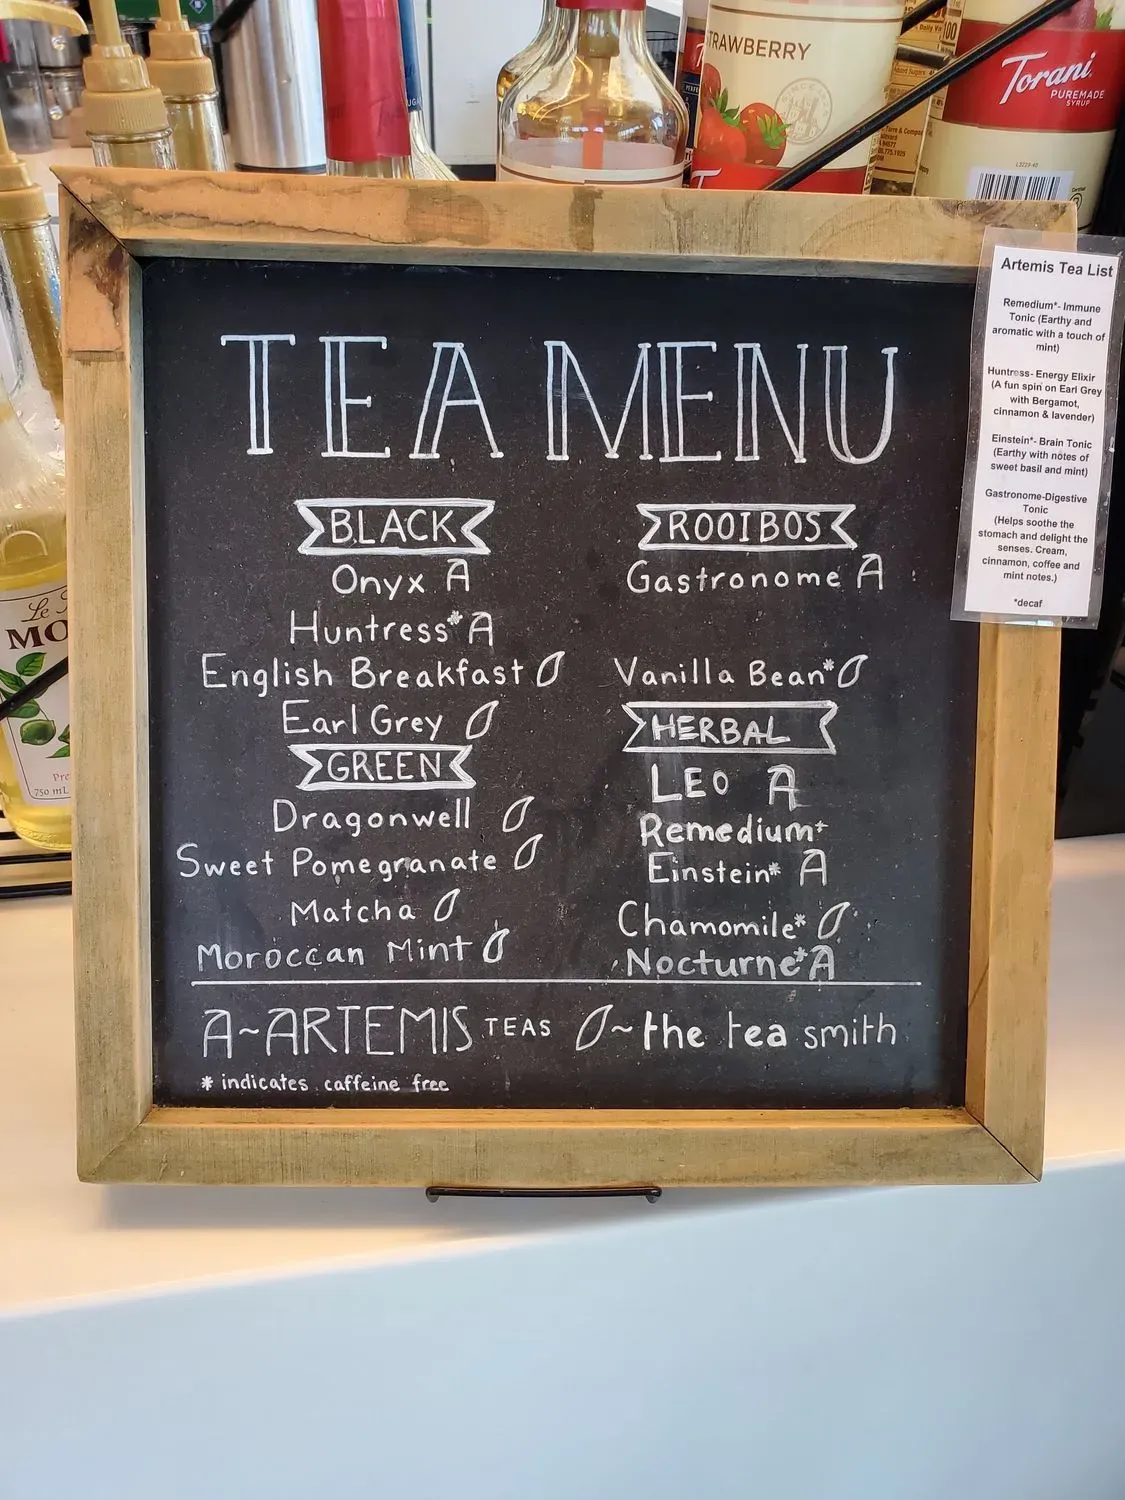 TRAWBERRY
Torani
PUREMADE
SYRUP
TEA MENU
BLACK
Onyx A
Huntress* A
English Breakfast
Earl Grey
GREEN
Dragonwell
Sweet Pomegranate
Matcha
Moroccan Mint
ROOIBOS
Gastronome A
Vanilla Bean*
HERBAL
LEO A
Remedium*
Einstein* A
Chamomile*
Nocturne* A
A~ARTEMIS TEAS
~the tea smith
* indicates caffeine free
Artemis Tea List
Remedium*- Immune
Tonic (Earthy and
aromatic with a touch of
mint)
Huntress- Energy Elixir
(A fun spin on Earl Grey
with Bergamot,
cinnamon & lavender)
Einstein*- Brain Tonic
(Earthy with notes of
sweet basil and mint)
Gastronome-Digestive
Tonic
(Helps soothe the
stomach and delight the
senses. Cream,
cinnamon, coffee and
mint notes.)
*decaf
Le
MO
750 mL